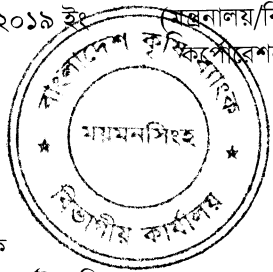 ২০১৯ ইং (মন্ত্রনালয়/বি
কর্পোরেশন
বাংলাদেশ কৃষি ব্যাংক
ময়মনসিংহ
বিভাগীয় কার্যালয়
ক